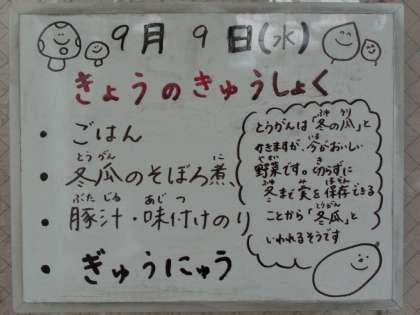 9月9日(水)
きょうのきゅうしょく
・ごはん
とうがん に
・冬瓜のそぼろ煮、
ぶたじる あじつ
・豚汁・味付けのり
・ぎゅうにゅう
ふゆ うり
とうがんは「冬の瓜」と
いま
かきますが、今がおいしい
やさい き
野菜です。切らずに
ふゆ み ほぞん
冬まで実を保存できる
とうがん
ことから「冬瓜」と
いわれるそうです